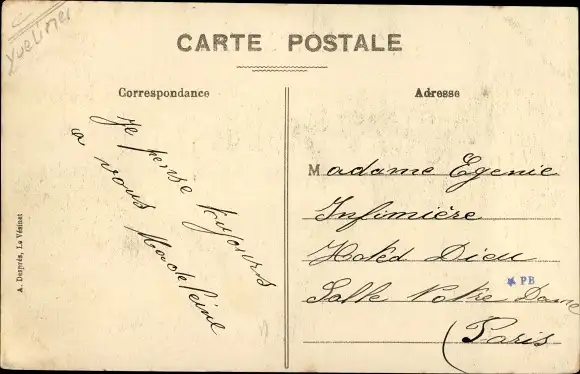 Yvelines
CARTE POSTALE
Correspondance
Adresse
Je pense toujours
a vous Madeleine
Madame Egenie
Infimière
Hoted Dieu
Salle Notre Dame
(Paris
PB
A. Desprês, Le Vésinet